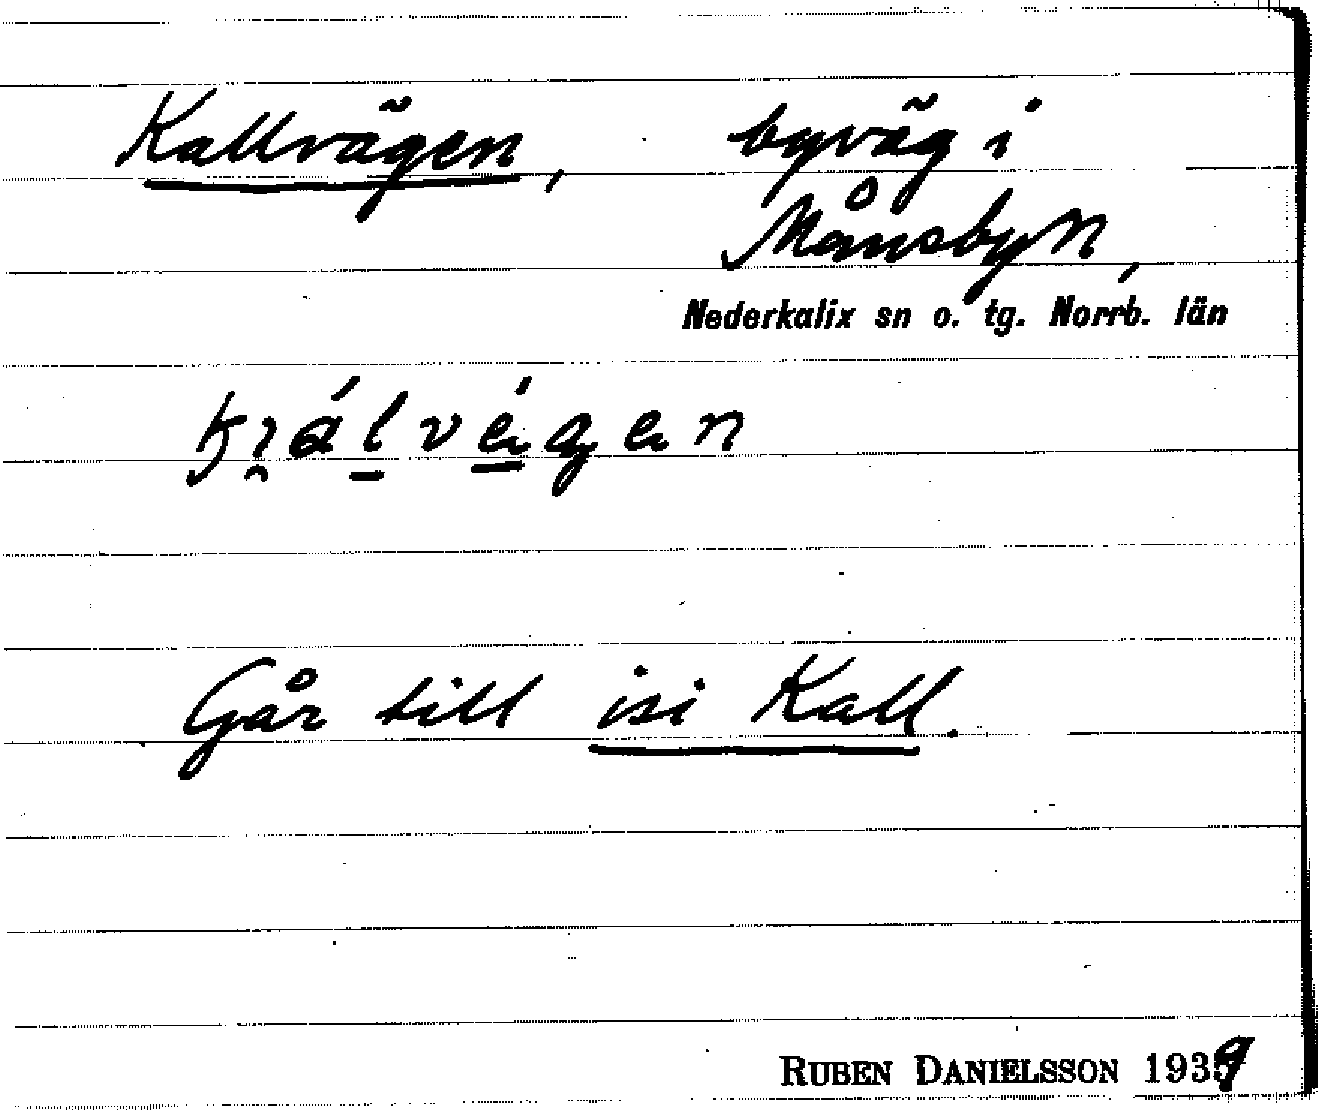 Kallvägen, byväg i
Månsbyn,
Nederkalix sn o. tg. Norrb. län
Går till isi Kall.
RUBEN DANIELSSON 1939